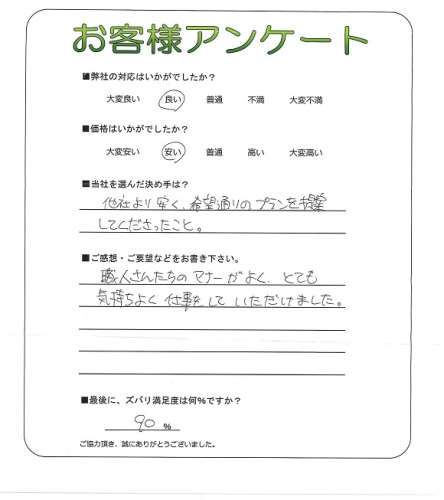 お客様アンケート
■弊社の対応はいかがでしたか？
大変良い 良い 普通 不満 大変不満
■価格はいかがでしたか？
大変安い 安い 普通 高い 大変高い
■当社を選んだ決め手は？
他社より安く、希望通りのプランを提案
してくださったこと。
■ご感想・ご要望などをお書き下さい。
職人さんたちのマナーがよく、とても
気持ちよく仕事をしていただけました。
■最後に、ズバリ満足度は何%ですか？
90 %
ご協力頂き、誠にありがとうございました。